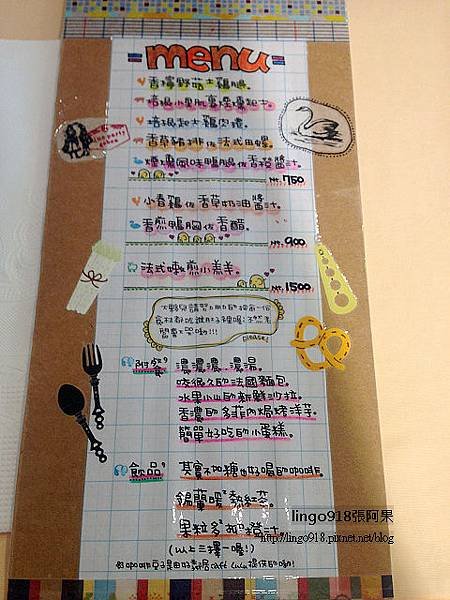 menu
香檸野菇土雞腿。
培根起士雞肉捲。
香草豬排佐法式田螺
煙燻風味鴨腿佐香橙醬汁。
NT. 750
小春雞佐香草奶油醬汁。
香煎鴨胸佐香醋。
NT. 900
法式嫩煎小羔羊。
NT. 1500
please!
附餐
濃濃濃濃湯。
咬很久的法國麵包。
水果小山的新鮮沙拉。
香濃的多菲內焗烤洋芋。
簡單好吃的小蛋糕。
飲品
其實不加糖也好喝的咖啡。
錫蘭暖熱紅茶。
果粒多多的橙汁
(以上三擇一喔!)
lingo918張阿果
http://lingo918.pixnet.net/blog